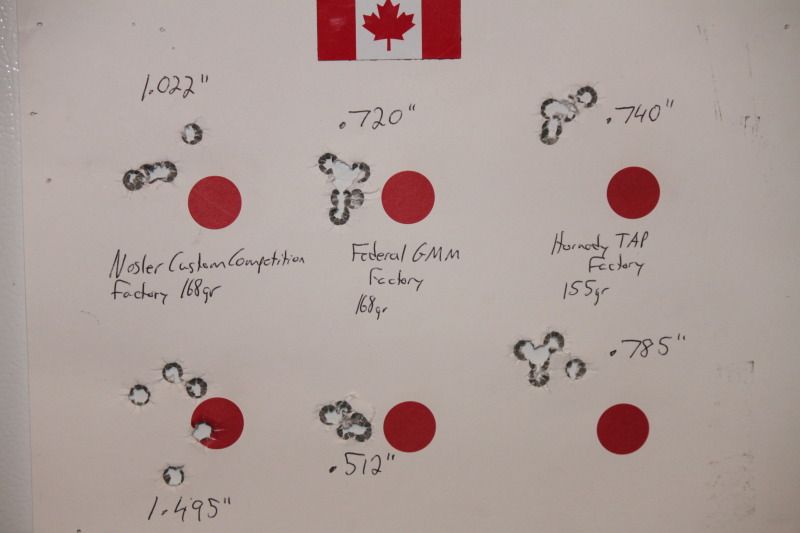 1.022"
.720"
.740"
Nosler Custom Competition
Factory 168gr
Federal GMM
Factory
168gr
Hornady TAP
Factory
155gr
.785"
.512"
1.495"